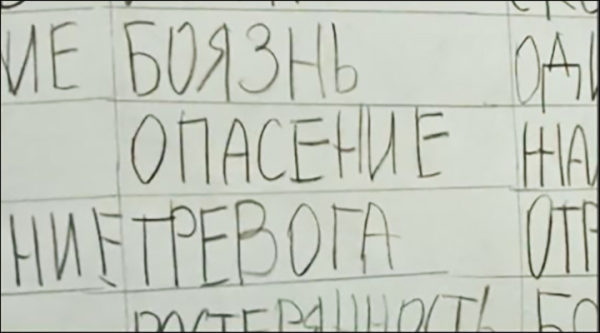 ИЕ БОЯЗНЬ ОДИ
ОПАСЕНИЕ ЖА
НИЕ ТРЕВОГА ОТР
РАСТЕРЯННОСТЬ БО